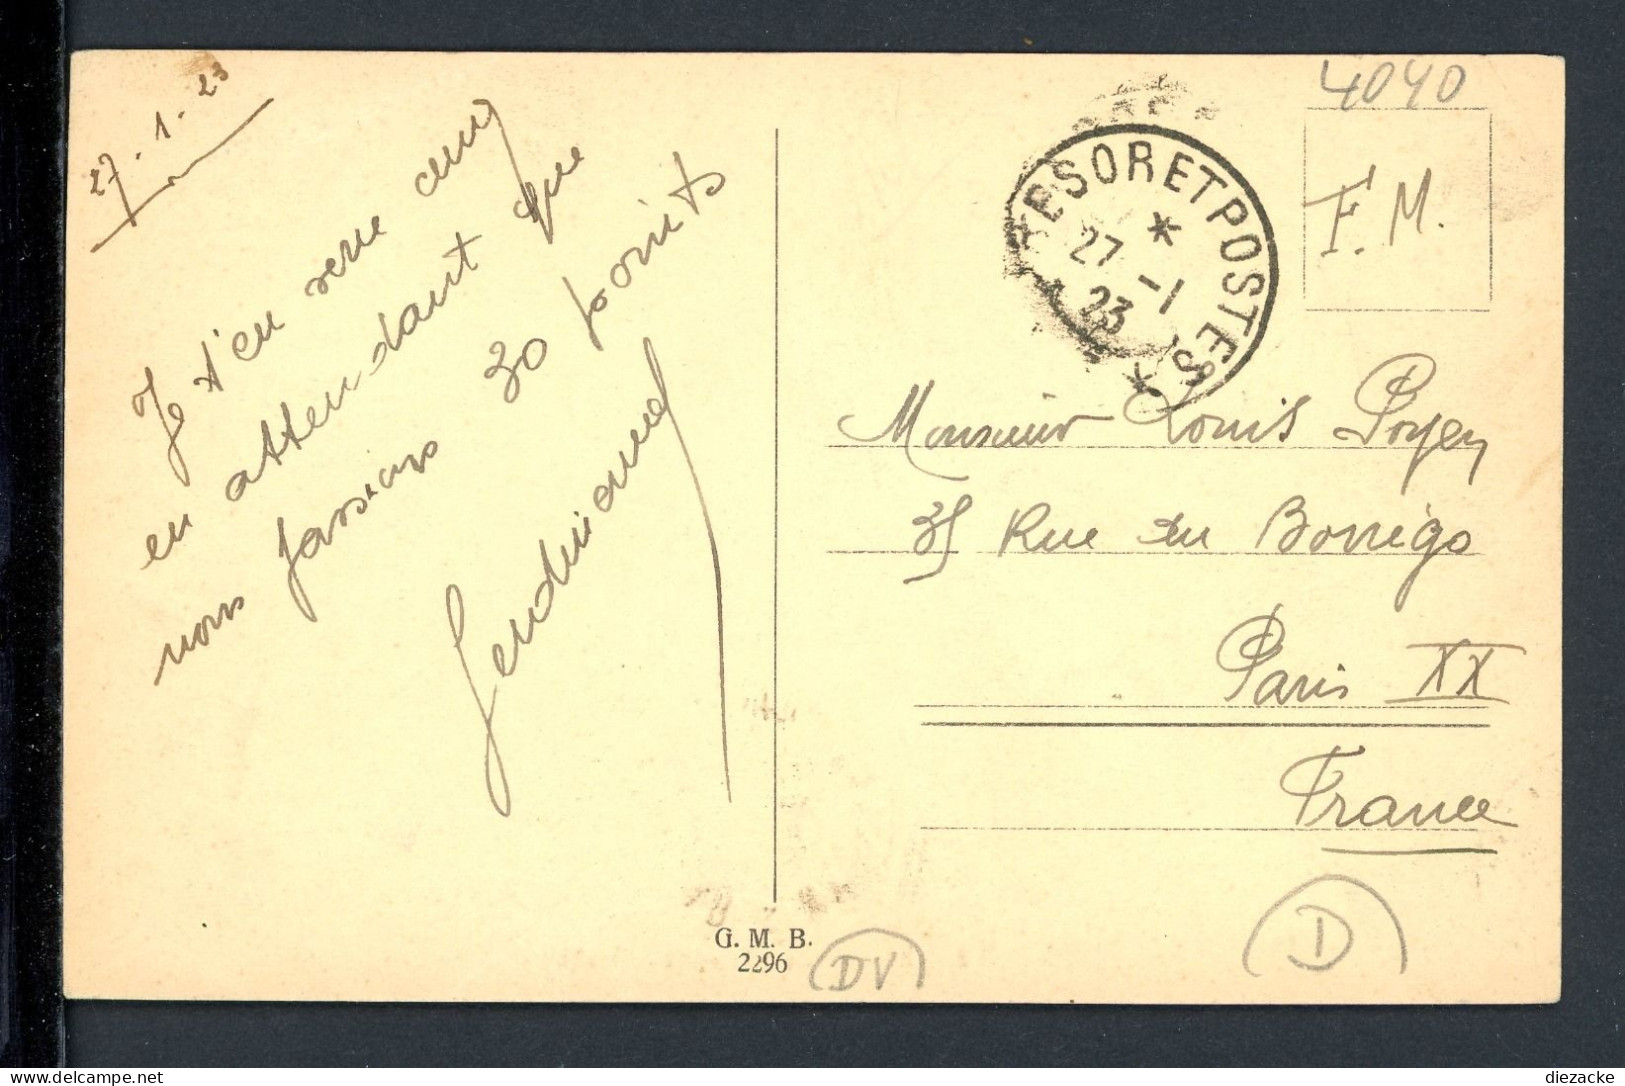 27-1-23
Je t'en serre cinq
en attendant que
nous fassions 30 points
4040
F.M.
TRESOR ET POSTES
27 -1
23
Monsieur Louis Poyen
35 Rue du Borrégo
Paris XX
France
G. M. B.
2296
DV
D
diezacke